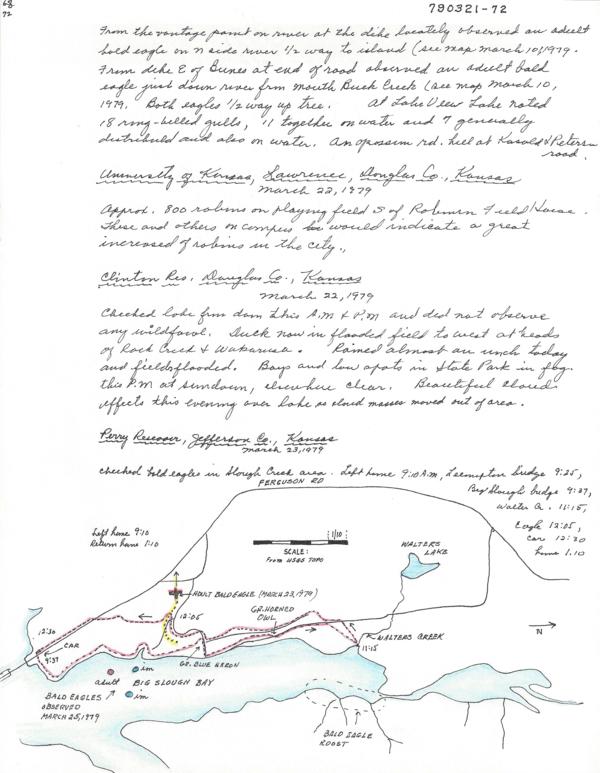 68
72
790321-72
From the vantage point on river at the dike locately observed an adult
bald eagle on N side river 1/2 way to island (see map March 10, 1979.
From dike E of Bunes at end of road observed an adult bald
eagle just down river from mouth Buck Creek (see map March 10,
1979. Both eagles 1/2 way up tree. At Lake View Lake noted
18 ring-billed gulls, 11 together on water and 7 generally
distributed and also on water. An opossum rd. kill at Kasold & Peterson
road.
University of Kansas, Lawrence, Douglas Co., Kansas
March 22, 1979
Approx. 800 robins on playing field S of Robinson Field House.
These and others on campus would indicate a great
increased of robins in the city.
Clinton Res. Douglas Co., Kansas
March 22, 1979
Checked lake from dam this A.M & P.M and did not observe
any wildfowl. Duck now in flooded field to west at heads
of Rock Creek & Wakarusa. Rained almost an inch today
and fields flooded. Bays and low spots in State Park in fog
this P.M at sundown, elsewhere clear. Beautiful cloud
effects this evening over lake as cloud masses moved out of area.
Perry Resevoir, Jefferson Co., Kansas
March 23, 1979
Checked bald eagles in Slough Creek area. Left home 9:10 A.M, Lecompton bridge 9:25,
Big Slough bridge 9:37,
Walter Cr. 11:15,
Eagle 12:05,
car 12:30
home 1:10
FERGUSON RD
Left home 9:10
Return home 1:10
1/10
SCALE:
From USGS TOPO
WALTERS
LAKE
ADULT BALD EAGLE (MARCH 23, 1979)
GR. HORNED
OWL
12:05
12:30
CAR
9:37
WALTERS CREEK
11:15
N
GR. BLUE HERON
adult
im
BIG SLOUGH BAY
im
BALD EAGLES
OBSERVED
MARCH 25, 1979
BALD EAGLE
ROOST